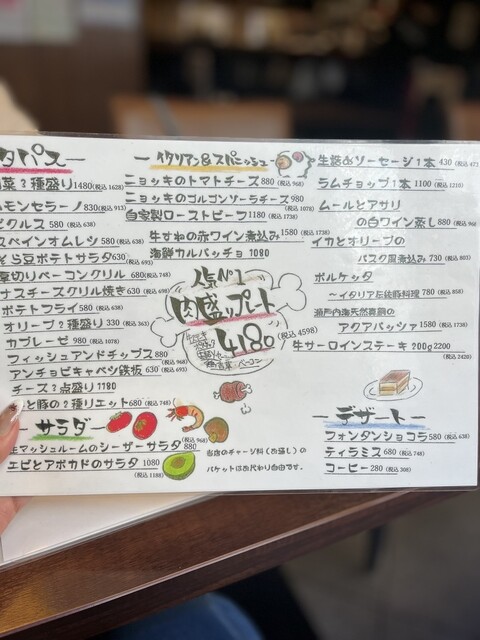 タパス
菜？種盛り1480(税込 1628)
モンセラーノ830(税込 913)
ピクルス 580 (税込 638)
スペインオムレツ 580(税込 638)
そら豆ポテトサラダ630(税込 693)
厚切りベーコングリル 680(税込 748)
ナスチーズグリル焼き 630(税込 693)
ポテトフライ580(税込 638)
オリーブ2種盛り 330(税込 363)
カプレーゼ 980(税込 1078)
フィッシュアンドチップス 880(税込 968)
アンチョビキャベツ鉄板 630(税込 693)
チーズ？点盛り1180
と豚の2種リエット680(税込 748)
サラダ
マッシュルームのシーザーサラダ 880(税込 968)
エビとアボカドのサラダ 1080(税込 1188)
イタリアン&スパニッシュ
ニョッキのトマトチーズ880(税込 968)
ニョッキのゴルゴンゾーラチーズ 980(税込 1078)
自家製ローストビーフ1180(税込 1298)
牛すねの赤ワイン煮込み1580(税込 1738)
海鮮カルパッチョ 1080
人気No1
肉盛りプレート
4180(税込 4598)
当店のチャージ料(お通し)の
バケットはおかわり自由です。
生詰めソーセージ1本 430(税込 473)
ラムチョップ1本 1100(税込 1210)
ムールとアサリ
の白ワイン蒸し880(税込 968)
イカとオリーブの
バスク風煮込み730(税込 803)
ポルケッタ
〜イタリア伝統豚料理 780(税込 858)
瀬戸内海天然真鯛の
アクアパッツァ 1580(税込 1738)
牛サーロインステーキ 200g2200(税込 2420)
デザート
フォンダンショコラ580(税込 638)
ティラミス680(税込 748)
コーヒー280(税込 308)